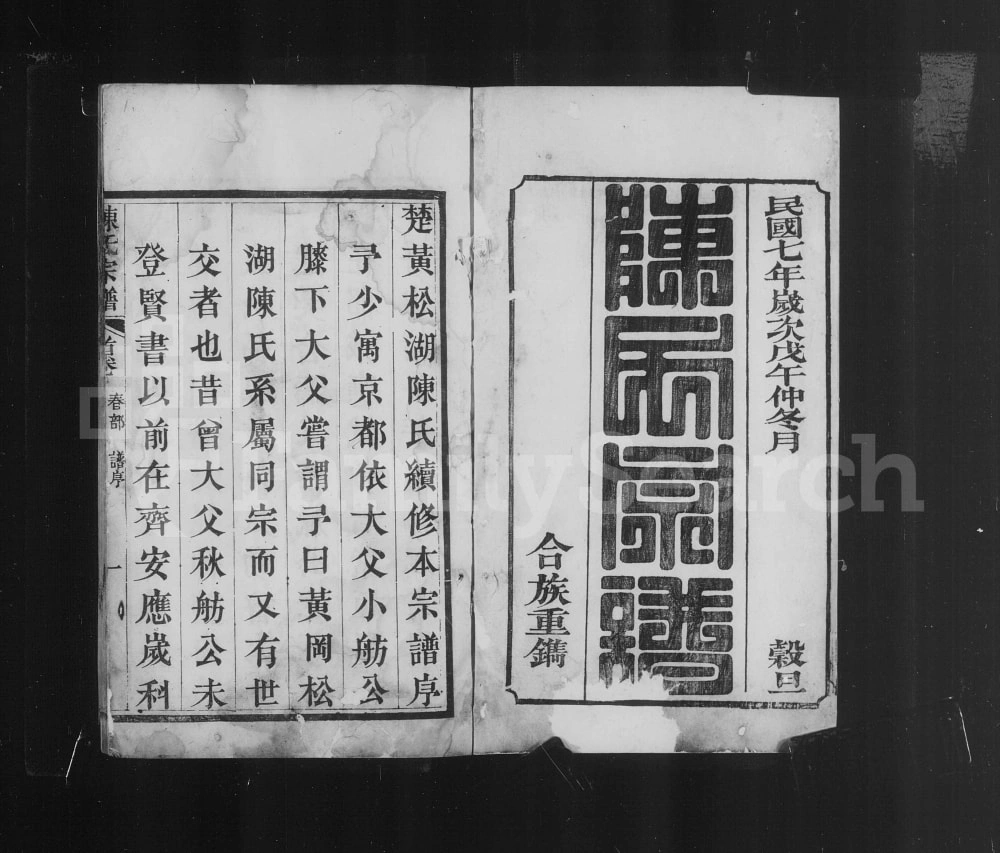 民國七年歲次戊午仲冬月 穀旦
陳氏宗譜
合族重鐫
楚黃松湖陳氏續修本宗譜序
予少寓京都依大父小舫公
膝下大父嘗謂予曰黃岡松
湖陳氏系屬同宗而又有世
交者也昔曾大父秋舫公未
登賢書以前在齊安應歲科
陳氏宗譜 首卷 春部 譜序 一
FamilySearch